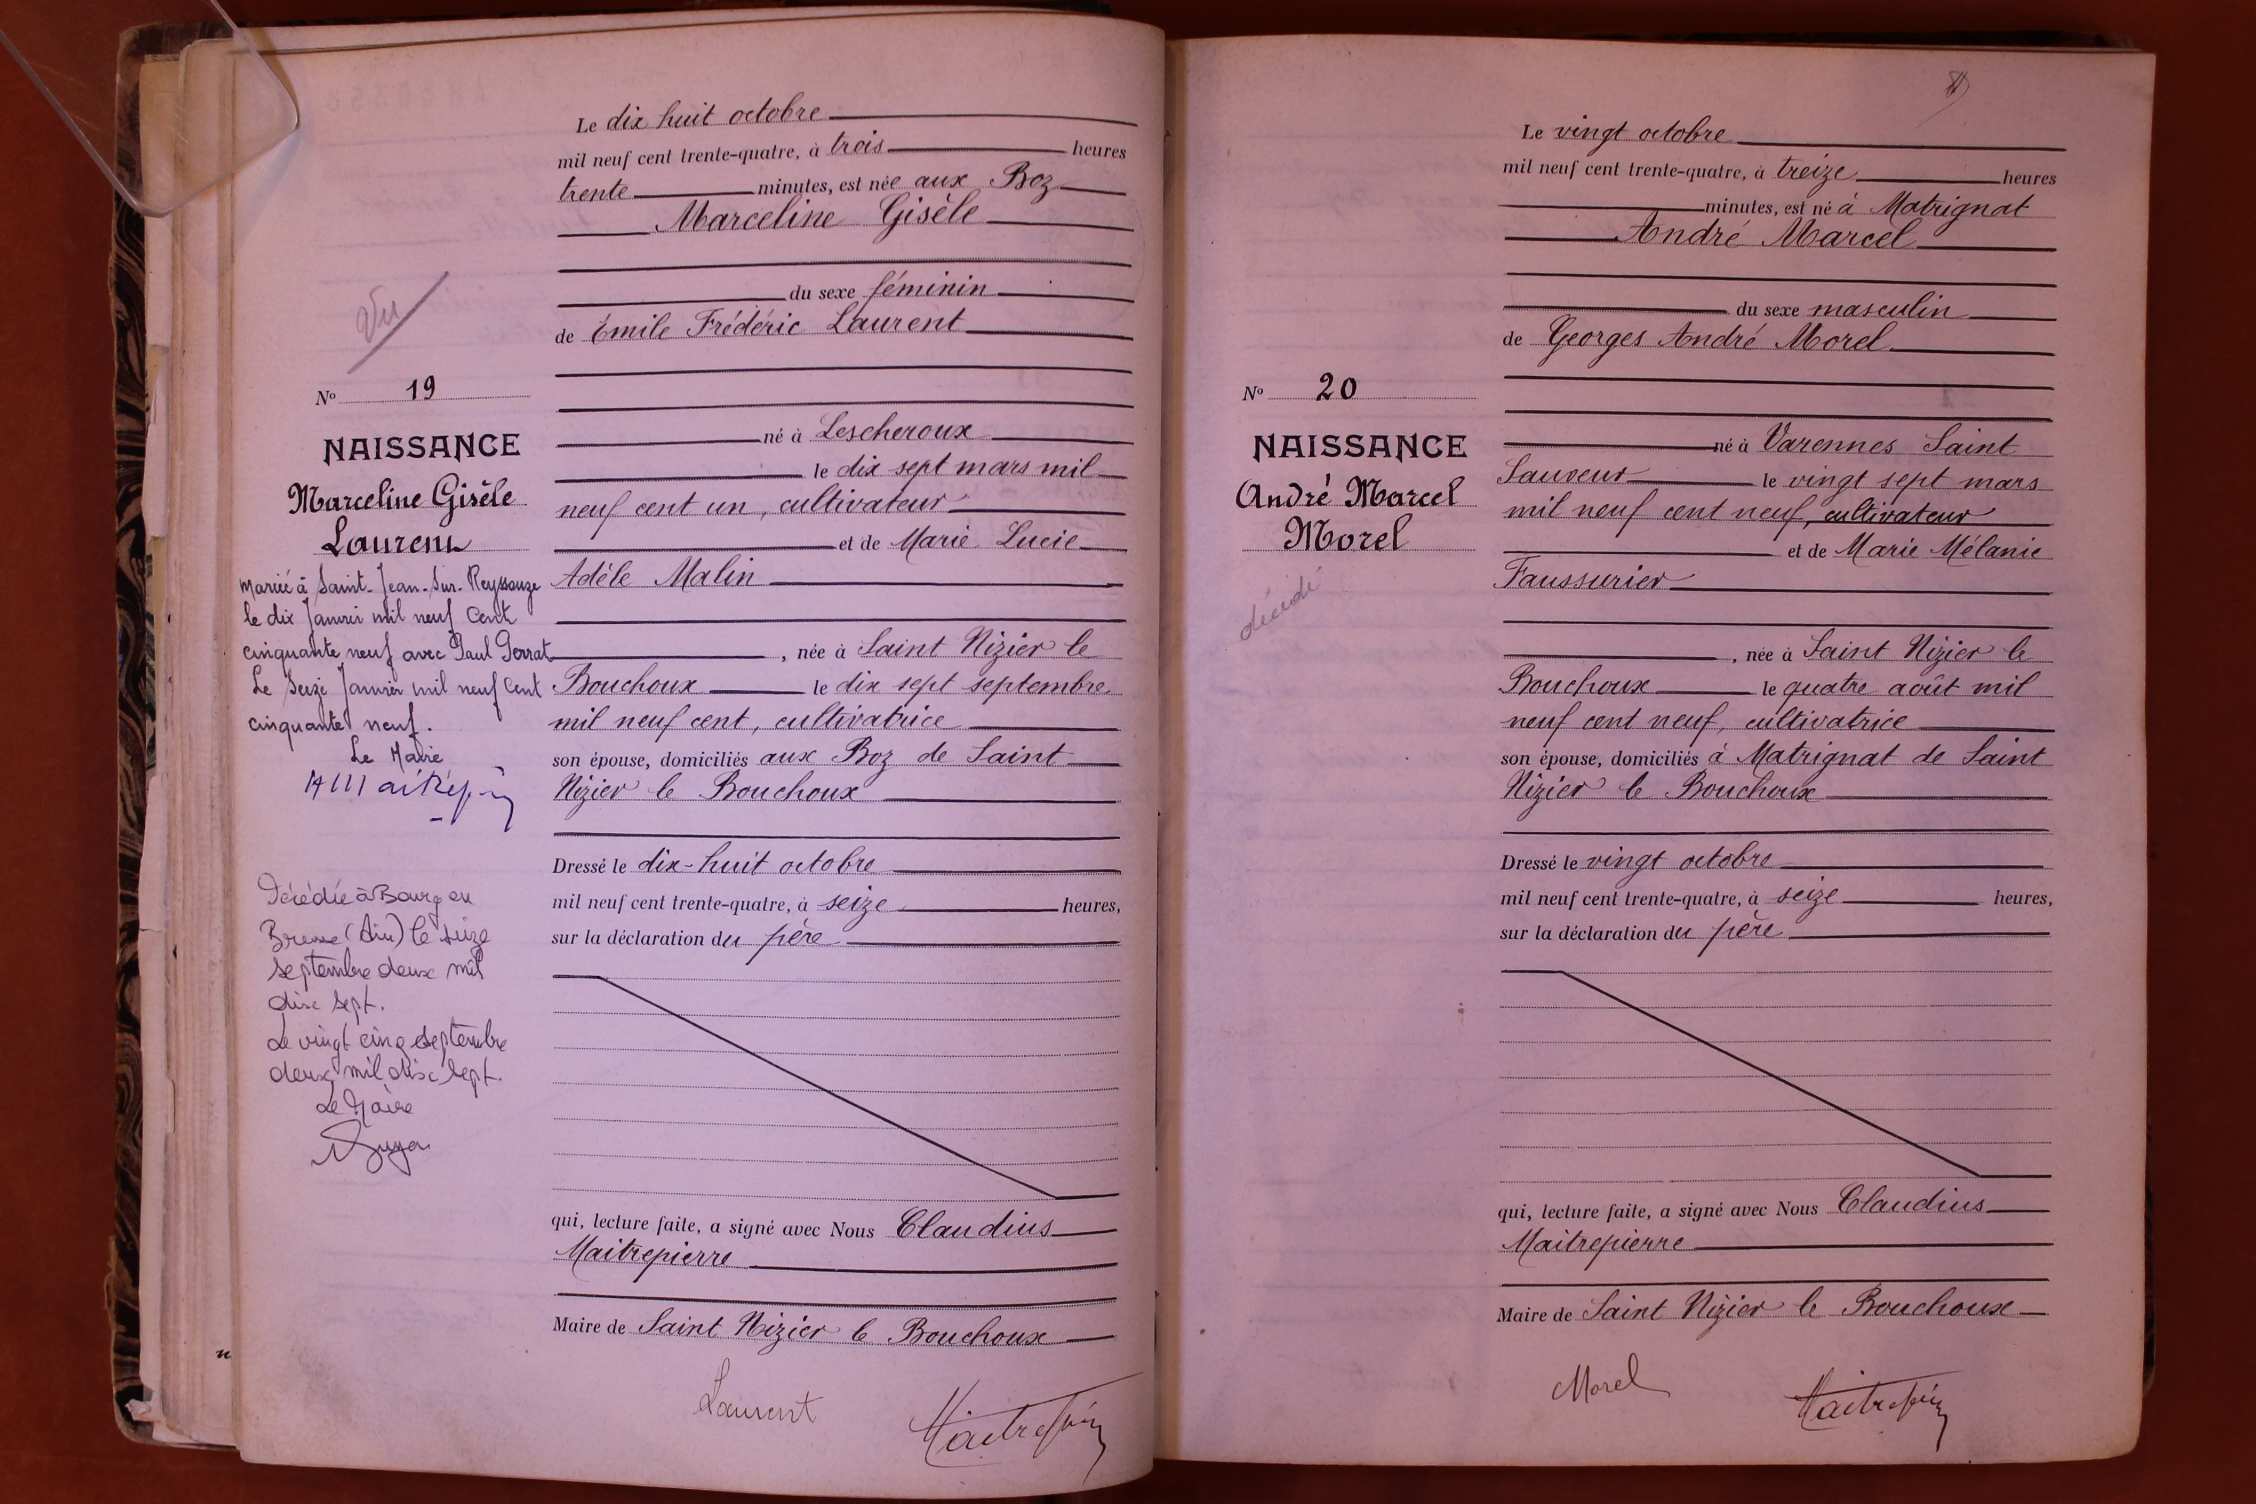 Le dix huit octobre
mil neuf cent trente-quatre, à trois heures
trente minutes, est née aux Boz
Marceline Gisèle
du sexe féminin
de Émile Frédéric Laurent
né à Lescheroux
le dix sept mars mil
neuf cent un, cultivateur
et de Marie Lucie
Adèle Malin
, née à Saint Nizier le
Bouchoux le dix sept septembre
mil neuf cent, cultivatrice
son épouse, domiciliés aux Boz de Saint
Nizier le Bouchoux
Dressé le dix-huit octobre
mil neuf cent trente-quatre, à seize heures,
sur la déclaration du père
qui, lecture faite, a signé avec Nous Claudius
Maitrepierre
Maire de Saint Nizier le Bouchoux
Laurent
Vu
No 19
NAISSANCE
Marceline Gisèle
Laurent
Mariée à Saint-Jean-sur-Reyssouze
le dix Janvier mil neuf Cent
cinquante neuf avec Paul
Le Seize Janvier mil neuf Cent
cinquante neuf.
Le Maire
Décédée à Bourg en
Bresse (Ain) le seize
septembre deux mil
dix sept.
Le vingt cinq septembre
deux mil dix sept.
Le Maire
Le vingt octobre
mil neuf cent trente-quatre, à treize heures
minutes, est né à Matrignat
André Marcel
du sexe masculin
de Georges André Morel
né à Varennes Saint
Sauveur le vingt sept mars
mil neuf cent neuf, cultivateur
et de Marie Mélanie
Faussurier
, née à Saint Nizier le
Bouchoux le quatre août mil
neuf cent neuf, cultivatrice
son épouse, domiciliés à Matrignat de Saint
Nizier le Bouchoux
Dressé le vingt octobre
mil neuf cent trente-quatre, à seize heures,
sur la déclaration du père
qui, lecture faite, a signé avec Nous Claudius
Maitrepierre
Maire de Saint Nizier le Bouchoux
Morel
No 20
NAISSANCE
André Marcel
Morel